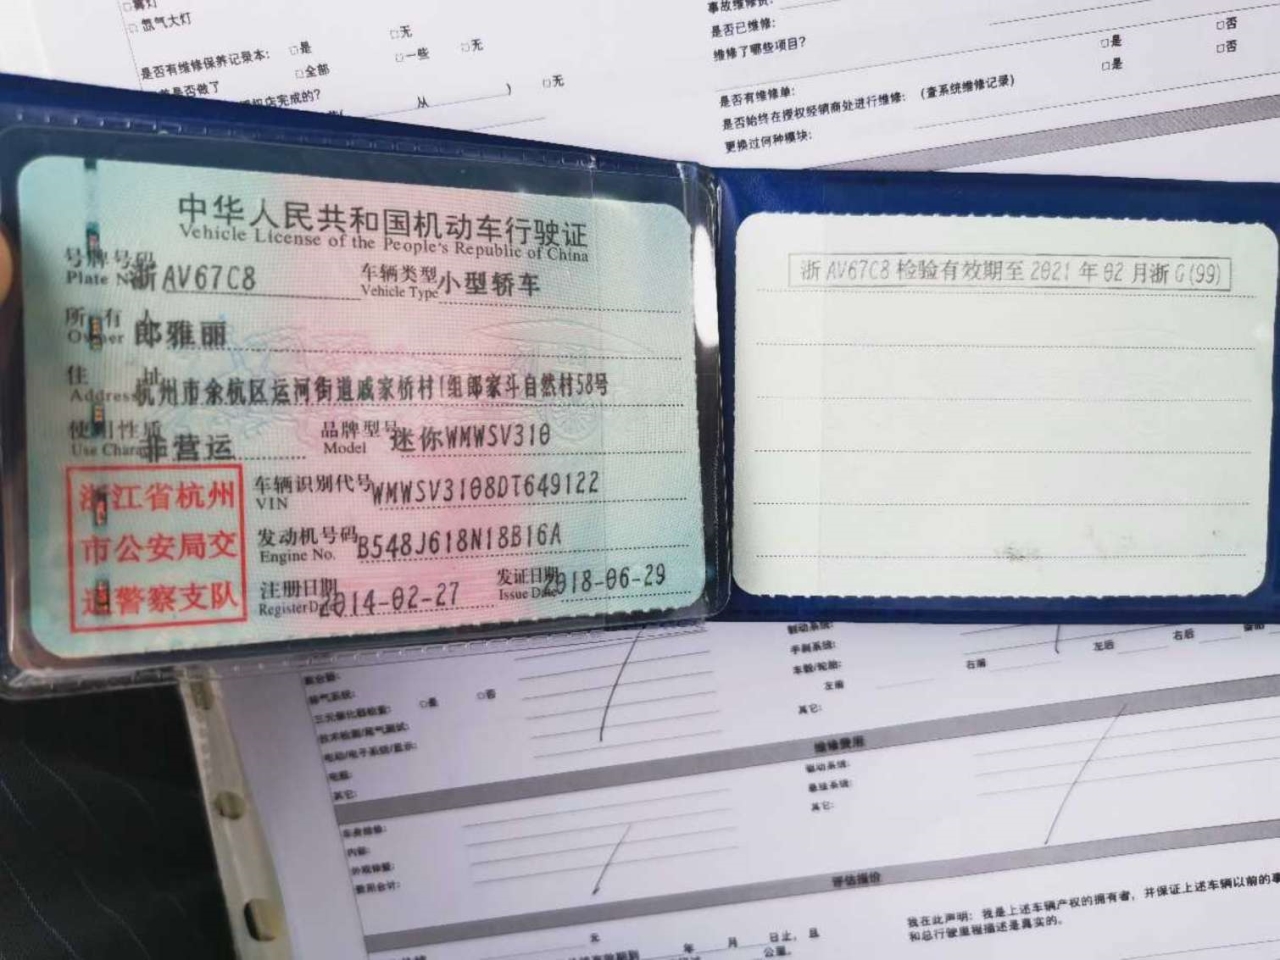 雾灯
氙气大灯
是否有维修保养记录本： □是 □无
□全部 □一些 □无
是否做了
店完成的?
从 ) □无
事故维修费:
是否已维修:
维修了哪些项目? □是 □否
□是 □否
是否有维修单:
是否始终在授权经销商处进行维修: (查系统维修记录)
更换过何种模块:
中华人民共和国机动车行驶证
Vehicle License of the People's Republic of China
号牌号码 浙AV67C8 车辆类型 小型轿车
Plate No. Vehicle Type
所有人 郎雅丽
Owner
住址 杭州市余杭区运河街道戚家桥村1组郎家斗自然村58号
Address
使用性质 非营运 品牌型号 迷你WMWSV310
Use Character Model
浙江省杭州
市公安局交
通警察支队
车辆识别代号 WMWSV3108DT649122
VIN
发动机号码 B548J618N18B16A
Engine No.
注册日期 2014-02-27 发证日期 2018-06-29
Register Date Issue Date
浙AV67C8检验有效期至2021年02月浙G(99)
排气系统:
三元催化器检查: □是 □否
技术检测/尾气测试:
电动/电子系统/显示:
电瓶:
其它:
制动系统:
手刹系统:
车毂/轮胎: 右前 左后 右后
左前
其它:
维修费用
车身维修:
内部:
外观维修:
费用合计:
驱动系统:
悬挂系统:
其它:
评估报价
元
年 月 日止，且
公里。
我在此声明：我是上述车辆产权的拥有者，并保证上述车辆以前的事
和总行驶里程描述是真实的。